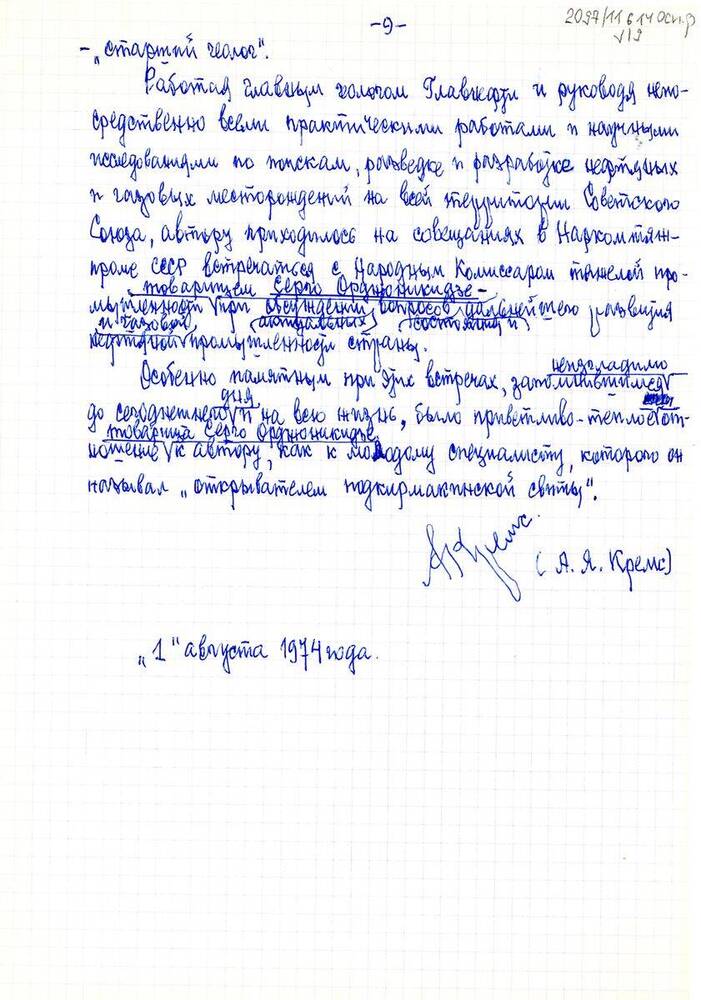 -9-
2097/11614 осн.ф
V19
- „старший геолог".
Работая главным геологом Главнефти и руководя непо-
средственно всеми практическими работами и научными
исследованиями по поискам, разведке и разработке нефтяных
и газовых месторождений на всей территории Советского
Союза, автору приходилось на совещаниях в Наркомтяж-
проме СССР встречаться с Народным Комиссаром тяжелой про-
товарищем Серго Орджоникидзе-
мышленности при обсуждении вопросов дальнейшего развития
и газовой актуальных состояния и
нефтяной промышленности страны.
неизгладимо
Особенно памятным при этих встречах, запомнившимся
дня
до сегодняшнего и на всю жизнь, было приветливо-теплое от-
товарища Серго Орджоникидзе
ношение к автору, как к молодому специалисту, которого он
называл „открывателем подкирмакинской свиты".
АКремс.
(А. Я. Кремс)
„1" августа 1974 года.